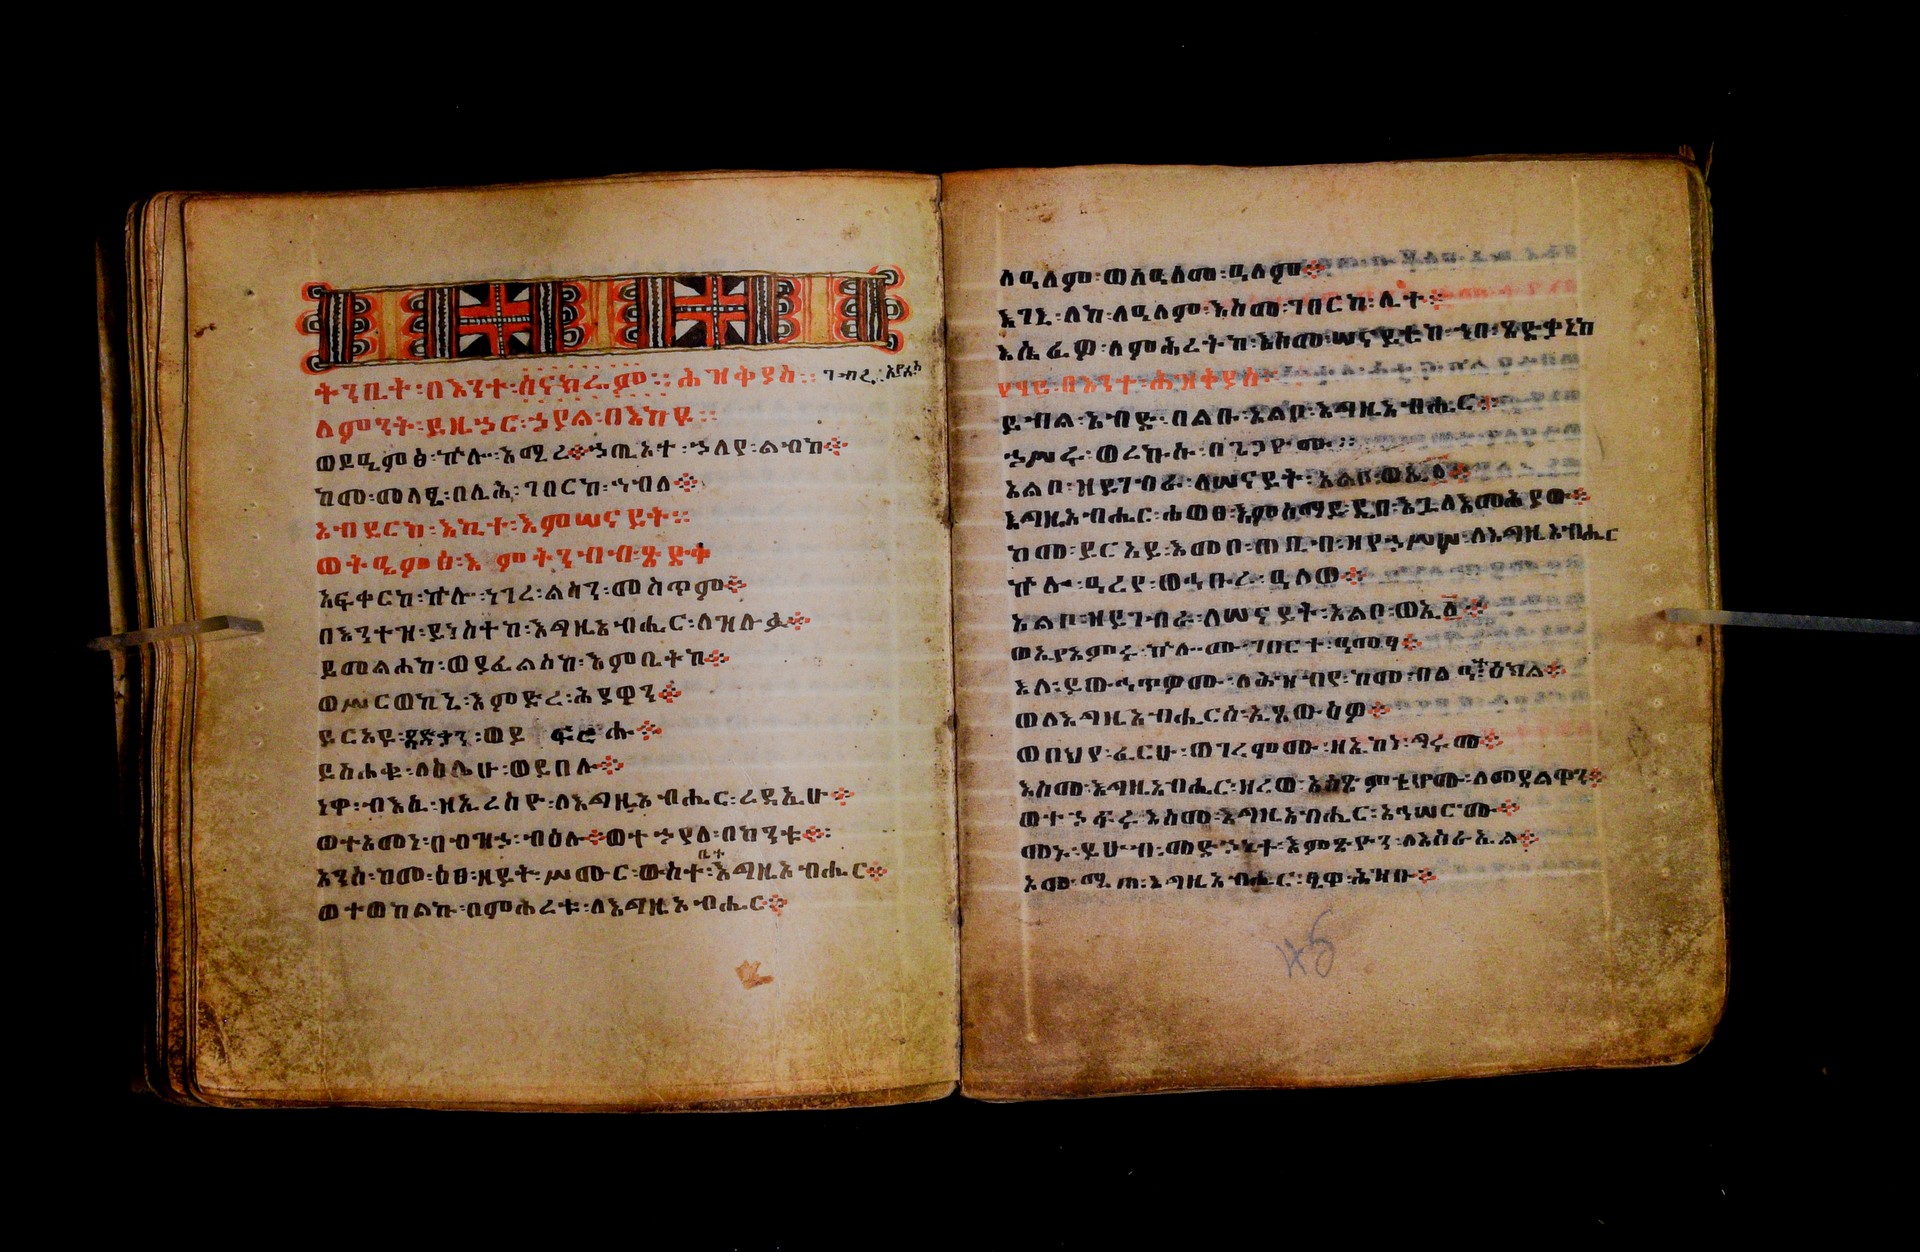 ትንቢት፡በእንተ፡ሰናክሬም፡፡ሕዝቅያስ፡፡
ለምንት፡ይዜኀር፡ኃያል፡በእከዩ፡፡
ወይዔምፅ፡ኵሎ፡አሚረ፨ኃጢአተ፡ኀለየ፡ልብከ፨
ከመ፡መላፂ፡በሊሕ፡ገበርከ፡ኀብለ፨
አብደርከ፡እኪተ፡እምሠናይት፡፡
ወትዔምፅ፡እምትንብብ፡ጽድቀ
አፍቀርከ፡ኵሎ፡ነገረ፡ልሳን፡መስጥም፨
በእንተዝ፡ይነስተከ፡እግዚአብሔር፡ለዝሉፉ፨
ይመልሐከ፡ወይፈልሰከ፡እምቤትከ፨
ወሥርወከኒ፡እምድረ፡ሕያዋን፨
ይርአዩ፡ጻድቃን፡ወይ ፍርሑ፨
ይስሐቁ፡ላዕሌሁ፡ወይበሉ፨
ነዋ፡ብእሲ፡ዝኢረሰዮ፡ለእግዚአብሔር፡ረዳኢሁ፨
ወተአመነ፡በብዝኃ፡ብዕሉ፨ወተኃየለ፡በከንቱ፨፡
ቤተ
አንሰ፡ከመ፡ዕፀ፡ዘይት፡ሥሙር፡ውስተ፡እግዚአብሔር፨
ወተወከልኩ፡በምሕረቱ፡ለእግዚአብሔር፨
ለዓለም፡ወለዓለመ፡ዓለም፨
እገኒ፡ለከ፡ለዓለም፡እስመ፡ገበርከ፡ሊተ፡፡
እሴፈዎ፡ለምሕረትከ፡እስመ፡ሠናይቴከ፡ኀበ፡ጻድቃኒከ
ዘዳዊት፡በእንተ፡ሕዝቅያስ፡፡
ይብል፡አብድ፡በልቡ፡አልቦ፡እግዚአብሔር፡፡
ኃሥሩ፡ወረኩሱ፡በጌጋዮሙ፡፡
አልቦ፡ዘይገብራ፡ለሠናይት፡አልቦ፡ወኢ፩፨
እግዚአብሔር፡ሐወፀ፡እምሰማይ፡ዲበ፡እጓለእመሕያው፨
ከመ፡ይርአይ፡እመቦ፡ጠቢብ፡ዘየኃሥሦ፡ለእግዚአብሔር
ኵሉ፡ዓረየ፡ወኀቡረ፡ዓለወ፨
አልቦ፡ዘይገብራ፡ለሠናይት፡አልቦ፡ወኢ፩፨
ወኢየአምሩ፡ኵሎሙ፡ገበርተ፡ዓመፃ፨
እለ፡ይውኅጥዎሙ፡ለሕዝብየ፡ከመ፡ብልዓ፡እክል፨
ወለእግዚአብሔርሰ፡ኢጸውዕዎ፨
ወበህየ፡ፈርሁ፡ወገረምሙ፡ዘኢኮነ፡ግሩመ፨
እስመ፡እግዚአብሔር፡ዘረወ፡አዕጽምቲሆሙ፡ለመደልዋን፨
ወተኃፍሩ፡እስመ፡እግዚአብሔር፡አኅሠርሙ፨
መኑ፡ይሁብ፡መድኃኒተ፡እምጽዮን፡ለእስራኤል፨
አመ፡ሜጠ፡እግዚአብሔር፡ፂዋ፡ሕዝቡ፨